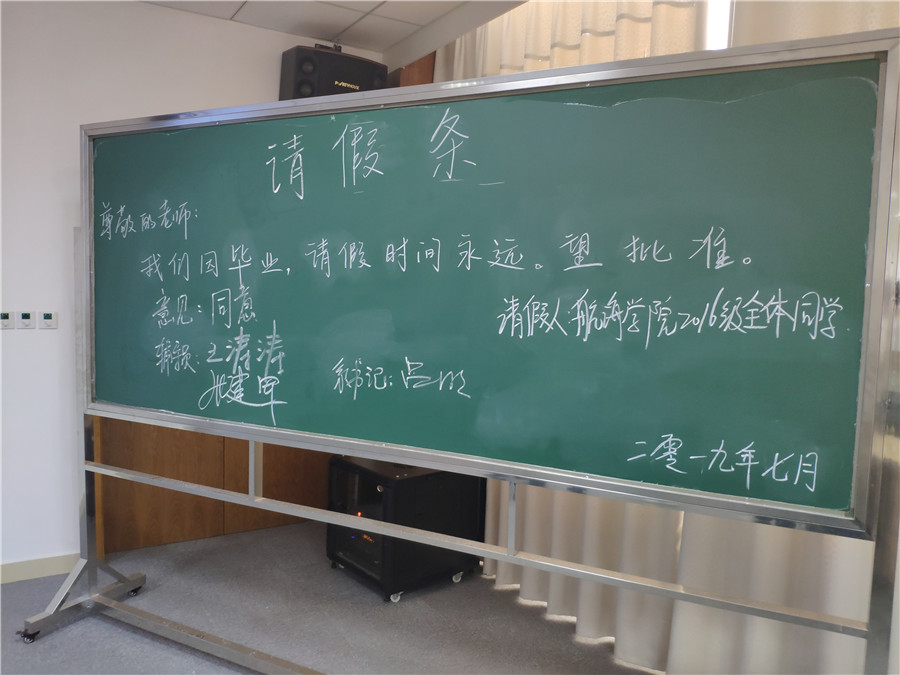 请假条
尊敬的老师：
我们因毕业，请假时间永远。望批准。
意见：同意
请假人：航海学院2016级全体同学.
辅导员：王涛涛
张建军
系书记：吕明
二零一九年七月